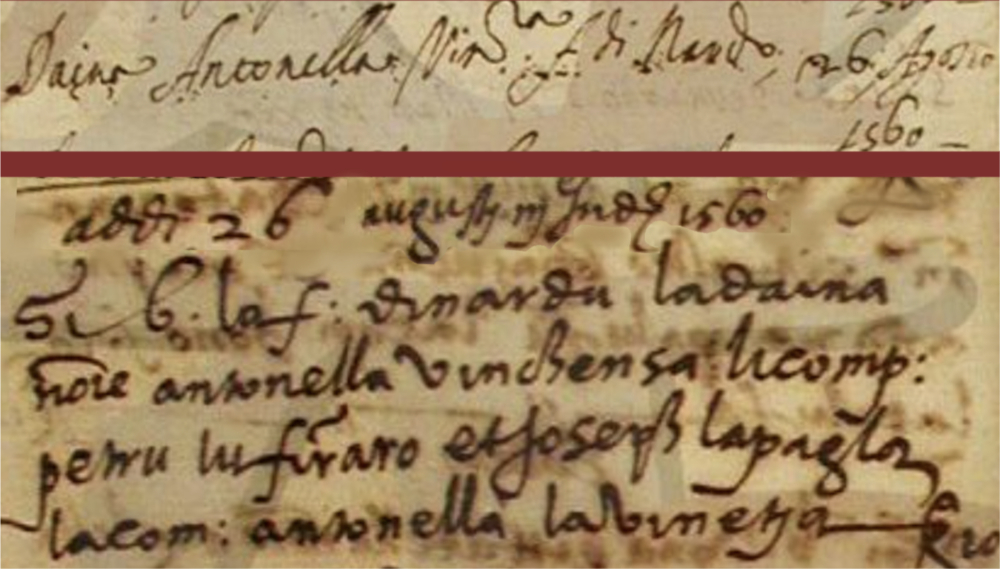 Daina Antonella Vin.ᶻᵃ f. di Nardo, 26 Agosto
1560
addi 26 augusti iij Ind. 1560
Si b. la f: di nardu ladaina
noĩe antonella vinchensa li comp:
petru lu firraro et Joseph lapagla
lacom: antonella lavinetja